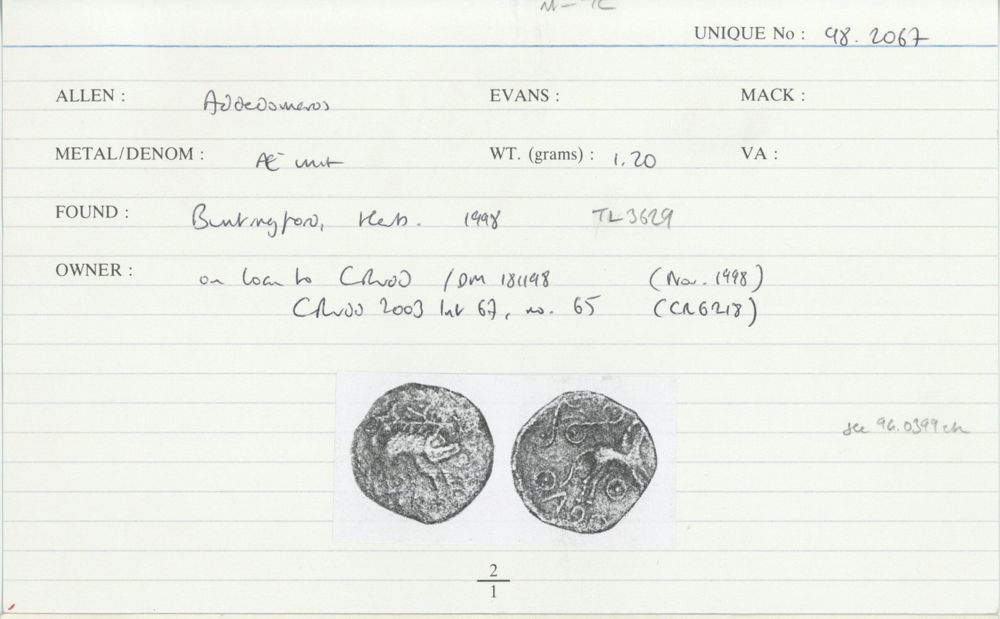 UNIQUE No : 98.2067
ALLEN : Addedomaros EVANS : MACK :
METAL/DENOM : Æ unit WT. (grams) : 1.20 VA :
FOUND : Buntingford, Herts. 1998 TL 3629
OWNER : on loan to CRWDD / DM 181198 (Nov. 1998)
2003 list 67, no. 65 (CR6218)
see 96.0399
2
1